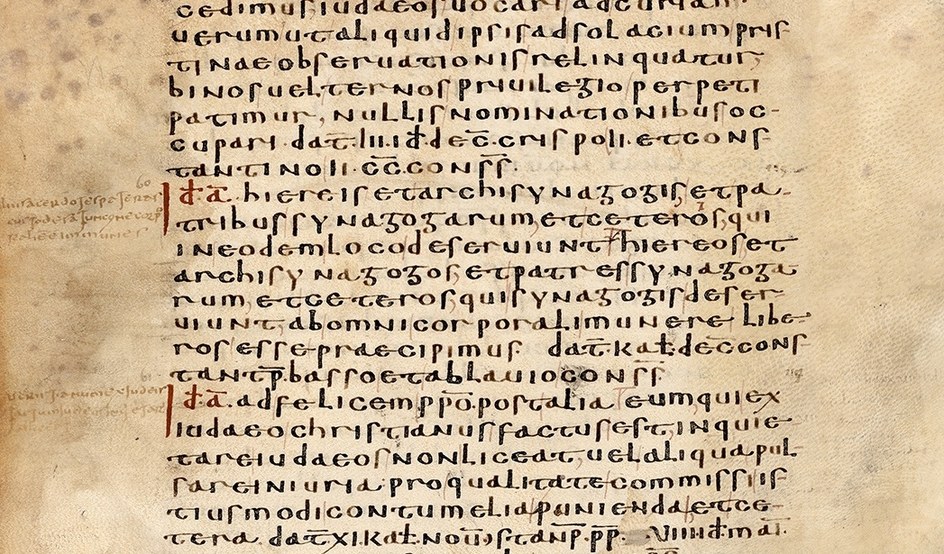 cedimus iudaeos uocari ad curiam
uerum ut aliquid ipsis ad solacium pris
tinae obseruationis relinquatur,
binos uel ternos priuilegio perpeti
patimur, nullis nominationibus oc-
cupari. dat̄. IIII. id̄. dec̄. crispo II. et cons
tantino II. c̄c̄. cons̄s̄.
id̄. ā. hiereis et archisynagogis, et pa-
tribus synagogarum, et ceteros, qui
in eodem loco deseruiunt. hiereos et
archisynagogos, et patres synagoga
rum, et ceteros, qui synagogis deser-
uiunt, ab omni corporali munere libe-
ros esse praecipimus. dat̄. kal̄. dec̄ cons
tantp̄. basso et ablauio cons̄s̄.
id̄. ā. ad felicem pp̄ō. post alia eum qui ex
iudaeo christianus factus est, inquie
tare iudaeos non liceat, uel aliqua pul
sare iniuria, pro qualitate commissi is
tius modi contumelia punienda, et ce-
tera dat̄. XI. kal̄. nou̅. stanp̄. p̄p̄. VIIII. id̄. mai̅.